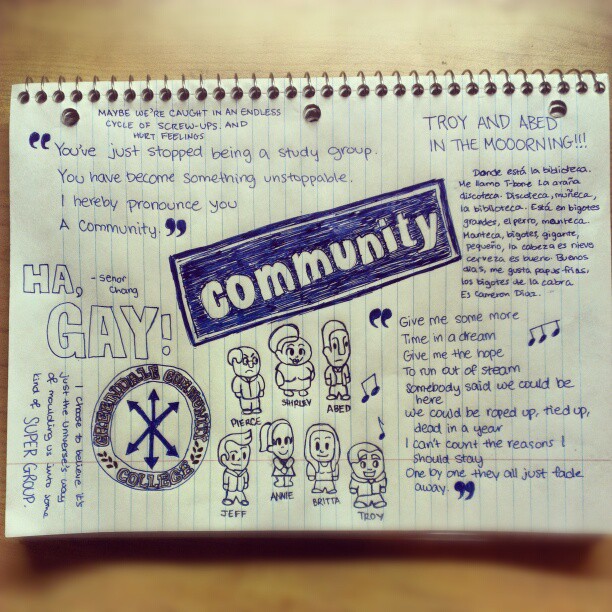 MAYBE WE'RE CAUGHT IN AN ENDLESS
CYCLE OF SCREW-UPS AND
HURT FEELINGS
"You've just stopped being a study group.
You have become something unstoppable.
I hereby pronounce you
A Community."
TROY AND ABED
IN THE MOOORNING!!!
Donde está la biblioteca.
Me llamo T-bone La araña
discoteca. Discoteca, muñeca,
la biblioteca. Está en bigotes
grandes, el perro, manteca.
Manteca, bigotes, gigante,
pequeño, la cabeza es nieve
cerveza es bueno. Buenos
dias, me gusta papas frías,
los bigotes de la cabra
Es Cameron Diaz.
community
HA,
GAY!
- Senor
Chang
"Give me some more
Time in a dream
Give me the hope
To run out of steam
Somebody said we could be
here
We could be roped up, tied up,
dead in a year
I can't count the reasons I
should stay
One by one they all just fade
away."
I choose to believe it's
just the universe's way
of moulding us into some
kind of SUPER GROUP.
GREENDALE COMMUNITY
COLLEGE
PIERCE
SHIRLEY
ABED
JEFF
ANNIE
BRITTA
TROY